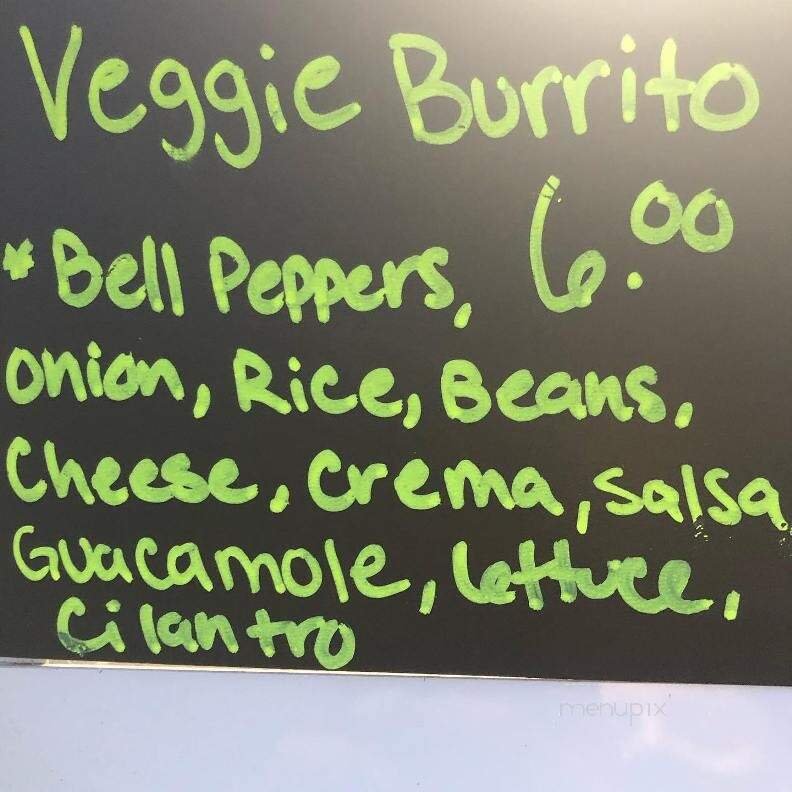 Veggie Burrito
6.00
* Bell Peppers,
Onion, Rice, Beans,
Cheese, Crema, Salsa,
Guacamole, Lettuce,
Cilantro
menupix